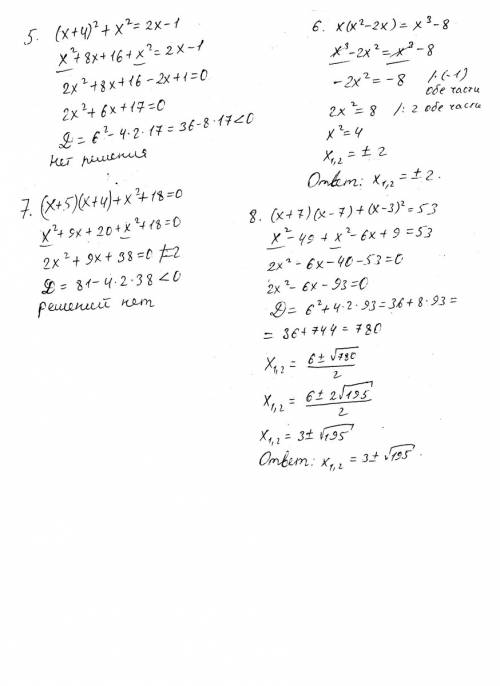 5. (x+4)² + x² = 2x-1
x²+8x+16+x² = 2x-1
2x²+8x+16-2x+1=0
2x²+6x+17=0
D = 6²-4·2·17 = 36-8·17<0
Нет решения
6. x(x²-2x) = x³-8
x³-2x² = x³-8
-2x² = -8 /·(-1) обе части
2x² = 8 /:2 обе части
x² = 4
x₁,₂ = ± 2
Ответ: x₁,₂ = ± 2.
7. (x+5)(x+4)+x²+18=0
x²+9x+20+x²+18=0
2x²+9x+38=0
D = 81-4·2·38<0
решений нет
8. (x+7)(x-7)+(x-3)² = 53
x²-49+x²-6x+9=53
2x²-6x-40-53=0
2x²-6x-93=0
D = 6²+4·2·93=36+8·93=
= 36+744 = 780
x₁,₂ = (6±√780)/2
x₁,₂ = (6±2√195)/2
x₁,₂ = 3±√195
Ответ: x₁,₂ = 3±√195.